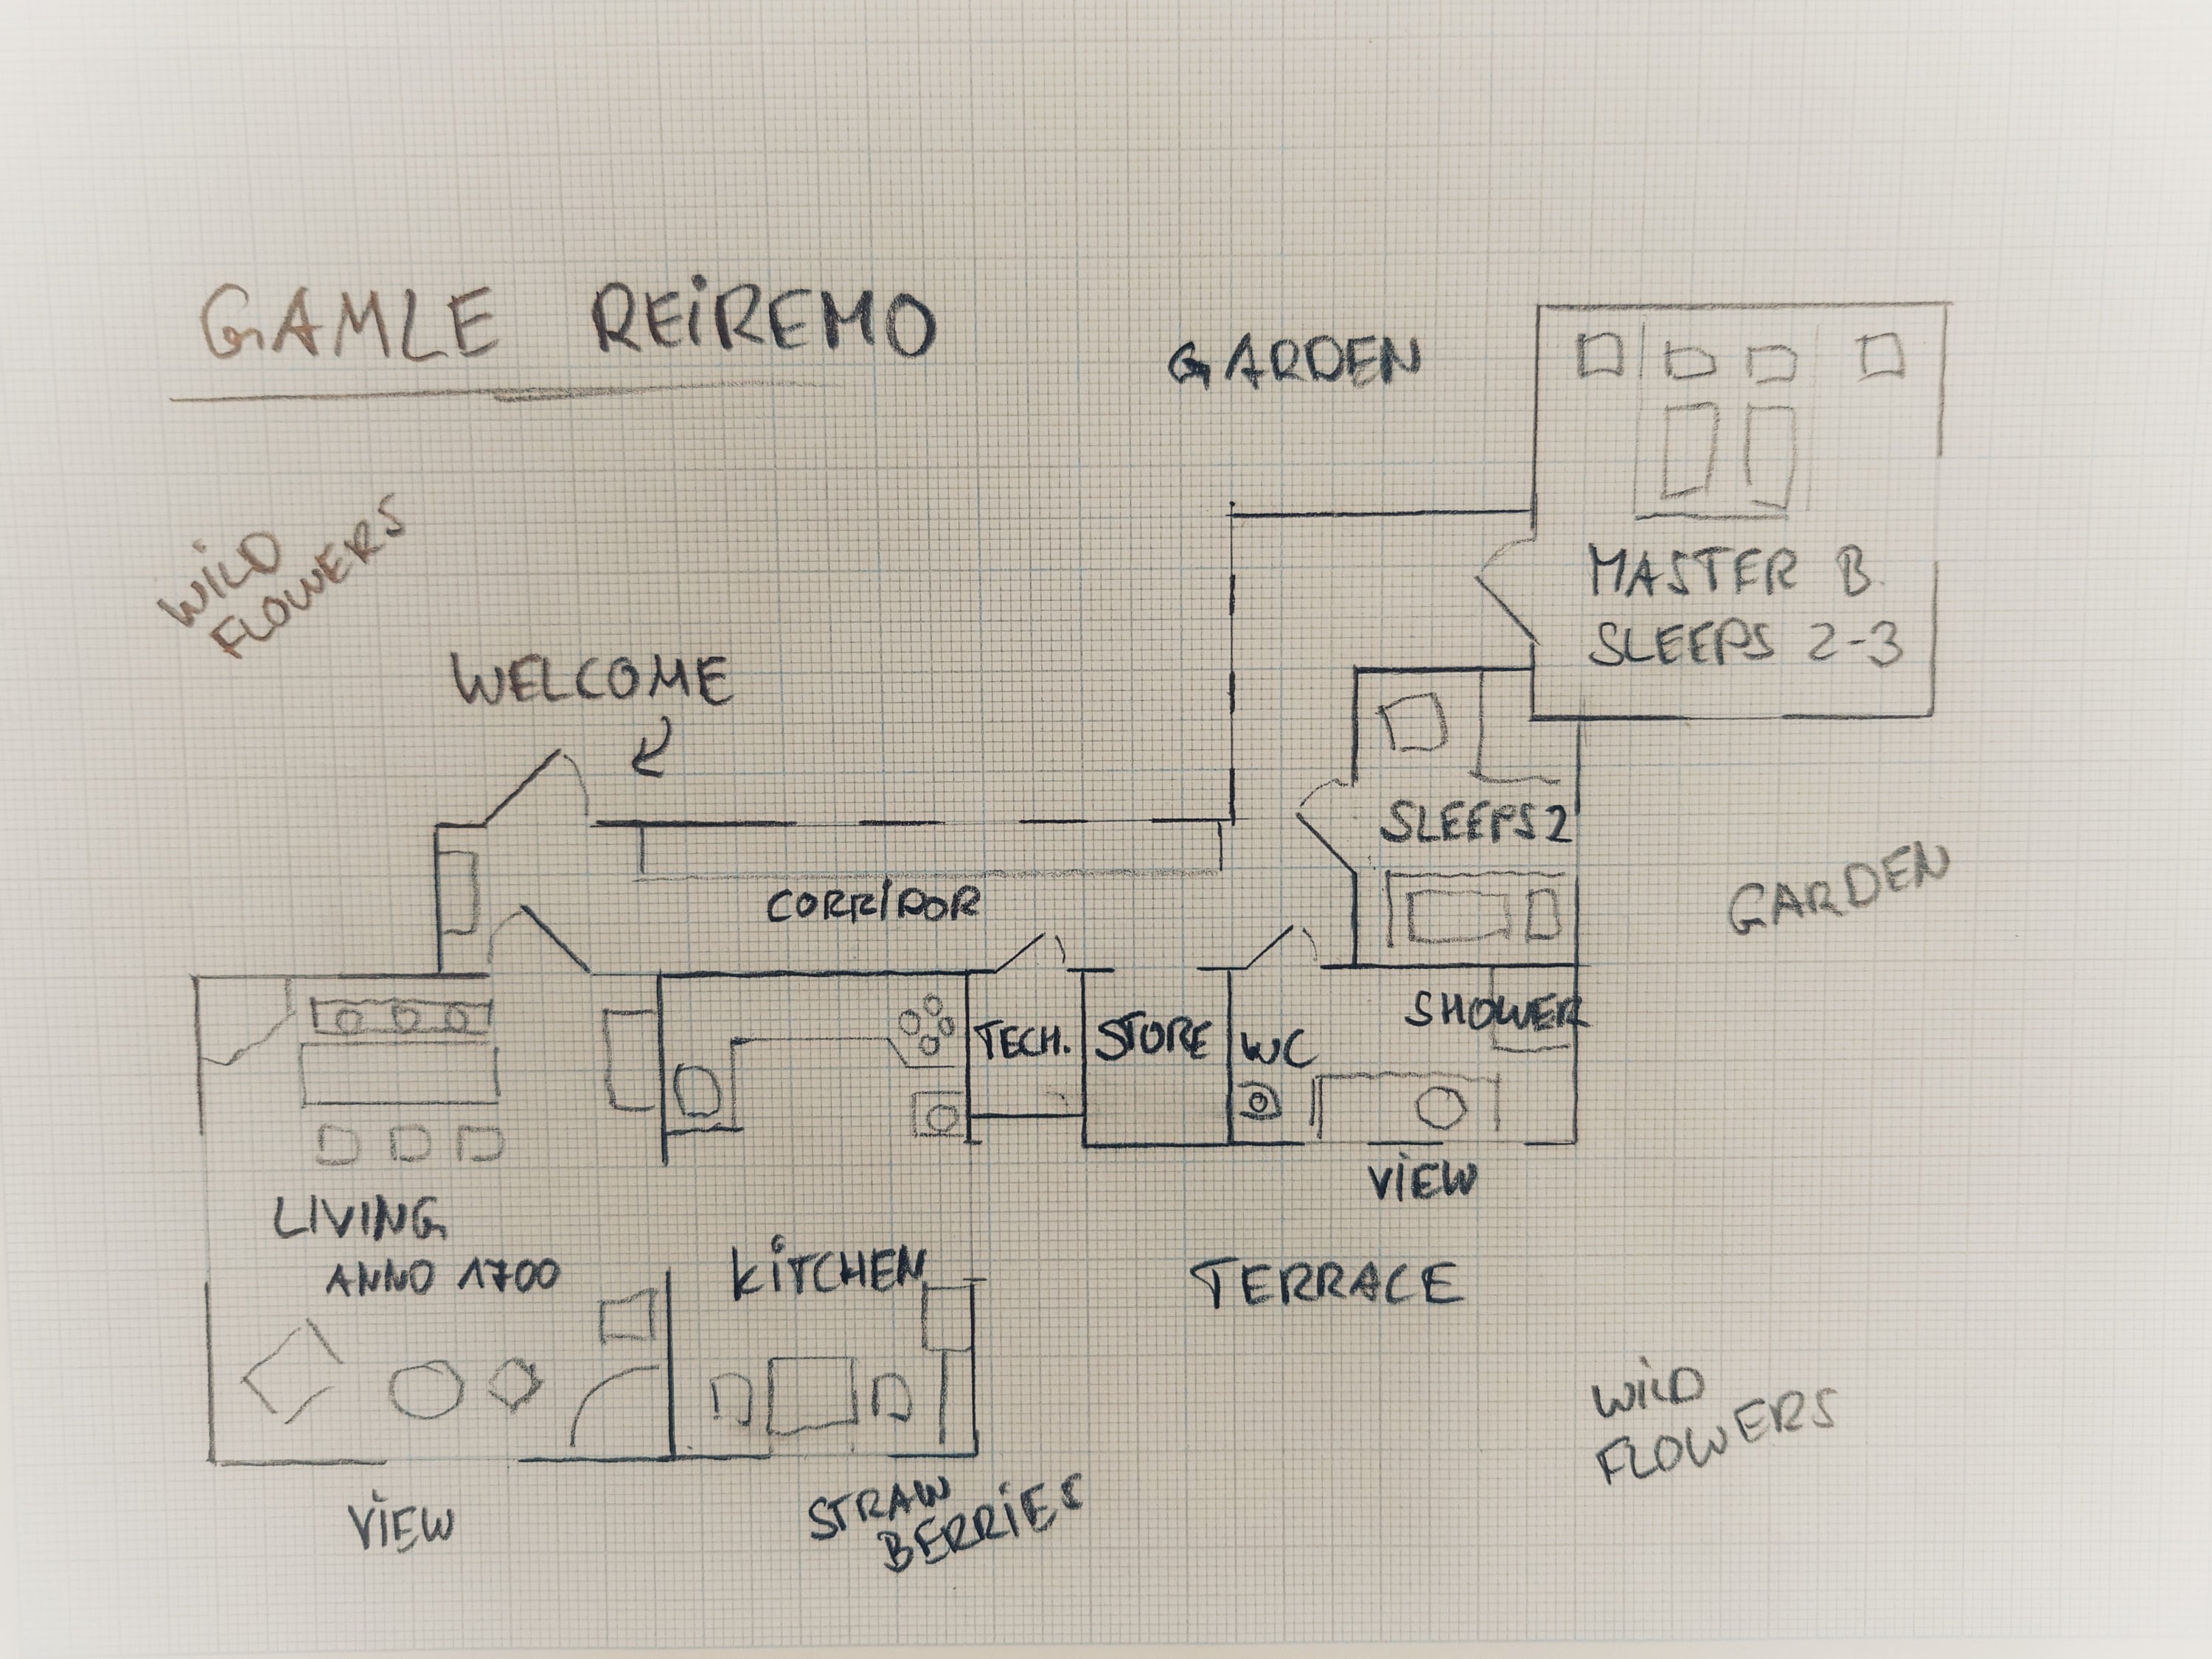 GAMLE REIREMO
GARDEN
WILD
FLOWERS
MASTER B.
SLEEPS 2-3
WELCOME
SLEEPS 2
CORRIDOR
GARDEN
SHOWER
TECH.
STORE
WC
VIEW
LIVING
ANNO 1700
KITCHEN
TERRACE
WILD
FLOWERS
VIEW
STRAW
BERRIES